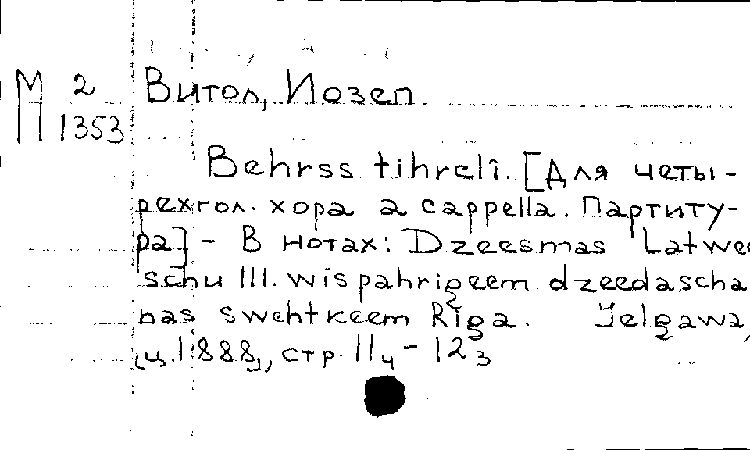 М 2 Витол, Иозеп.
П 1353
Behrss tihrelî. [Для четы-
рехгол. хора a cappella. Партиту-
ра] - В нотах: Dzeesmas Latwee
schu III. wispahrigeem dzeedascha
nas swehtkeem Rîga. Jelgawa,
[ц. 1888], стр. 11₄ - 12₃